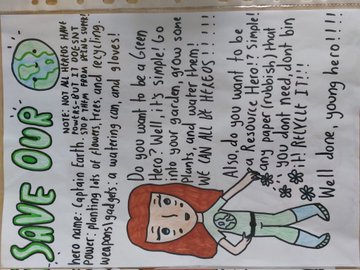 SAVE OUR
NOTE: NOT ALL HEROES HAVE
POWERS-BUT IT DOESN'T
STOP THEM FROM BEING SUPER!
hero name: Captain Earth.
Power: planting lots of flowers, trees, and recycling.
weapons/gadgets: a watering can, and gloves!
Do you want to be a Green
Hero? Well, it's simple! Go
into your garden, grow some
plants, and water them!
WE CAN ALL BE HEROES!!!!!!
Also, do you want to be
a Resource Hero!? Simple!
any paper (rubbish) that
you dont need, dont bin
it! RECYCLE IT!!!
Well done, young hero!!!!